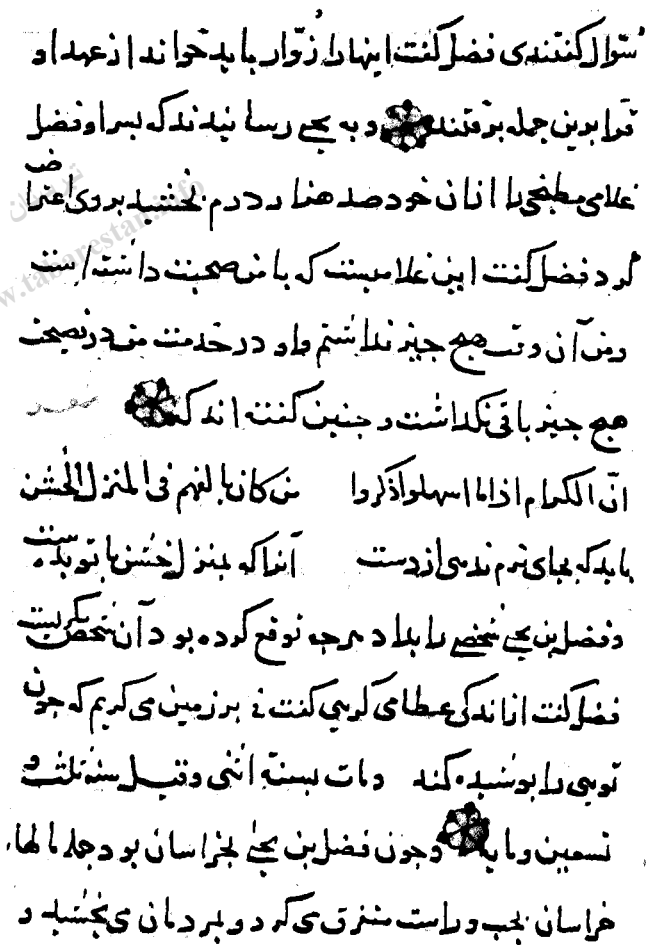 سؤال کنندی فضل کفت اینها را زوار باید خواند از عهد او
برین جمله برفتند و به یحیی رسانیدند که پسر او فضل
غلامی مطبخی را از ان خود صد هزار درم بخشید بروی اعتراض
کرد فضل کفت این غلامیست که با من صحبت داشته است
و من آن وقت هیچ چیز نداشتم و او در خدمت من در نصیحت
هیچ چیز باقی نکداشت و چنین کفته اند که
انّ الکرام اذا ما اسهلوا ذکروا من کان یالفهم فی المنزل الخشن
باید که بجای نرم ندهی از دست آنرا که بمنزل خشن با تو بدست
و فضل بن یحیی شخصی را بده درم جه توقع کرده بود آن شخص بکریست
فضل کفت از اندکی عطا می کریی کفت نی بر زمین می کریم که جون
تویی را بوشیده کند و مات بسنة اثنی و قیل سنة ثلث و
تسعین و مایه و جون فضل بن یحیی بخراسان بود جمله مالها،
خراسان بجب و راست متفرق می کرد و بمردمان می بخشید و
www.tabarestan.info
تبرستان